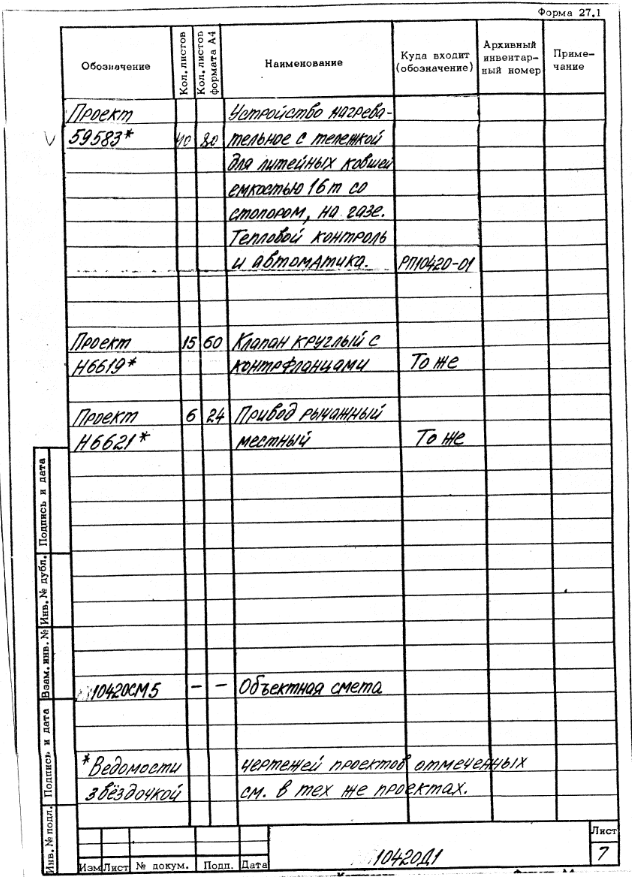 Форма 27.1
Обозначение Кол. листов Кол. листов формата А4 Наименование Куда входит (обозначение) Архивный инвентарный номер Приме-чание
Проект Устройство нагрева-
59583* 40 80 тельное с тележкой
для литейных ковшей
емкостью 16 т со
стопором, на газе.
Тепловой контроль
и автоматика. РП10420-01
Проект 15 60 Клапан круглый с
Н6619* контрфланцами То же
Проект 6 24 Привод рычажный
Н6621* местный То же
10420СМ5 – – Объектная смета
*Ведомости чертежей проектов отмеченных
звёздочкой см. в тех же проектах.
Подпись и дата
Инв. № дубл.
Взам. инв. №
Подпись и дата
Инв. № подл.
Изм Лист № докум. Подп. Дата
10420Д1
Лист
7